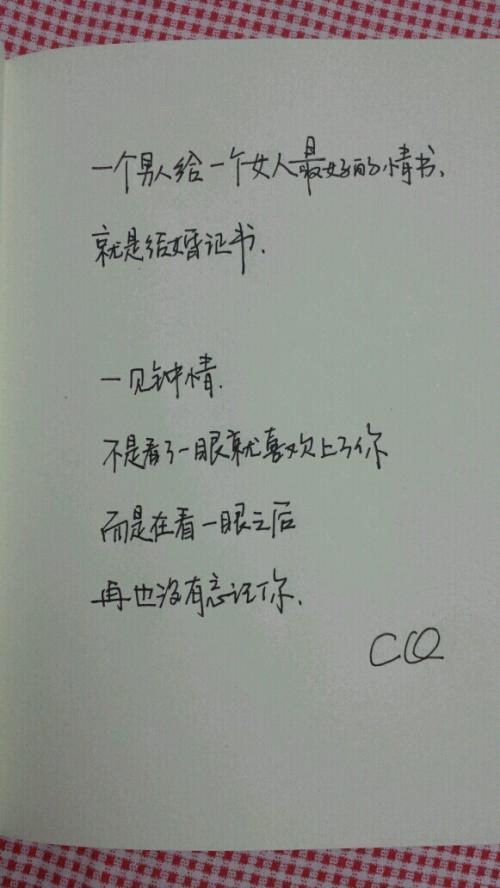 一个男人给一个女人最好的情书、
就是结婚证书.
一见钟情.
不是看了一眼就喜欢上了你
而是在看一眼之后
再也没有忘记你.
CQ